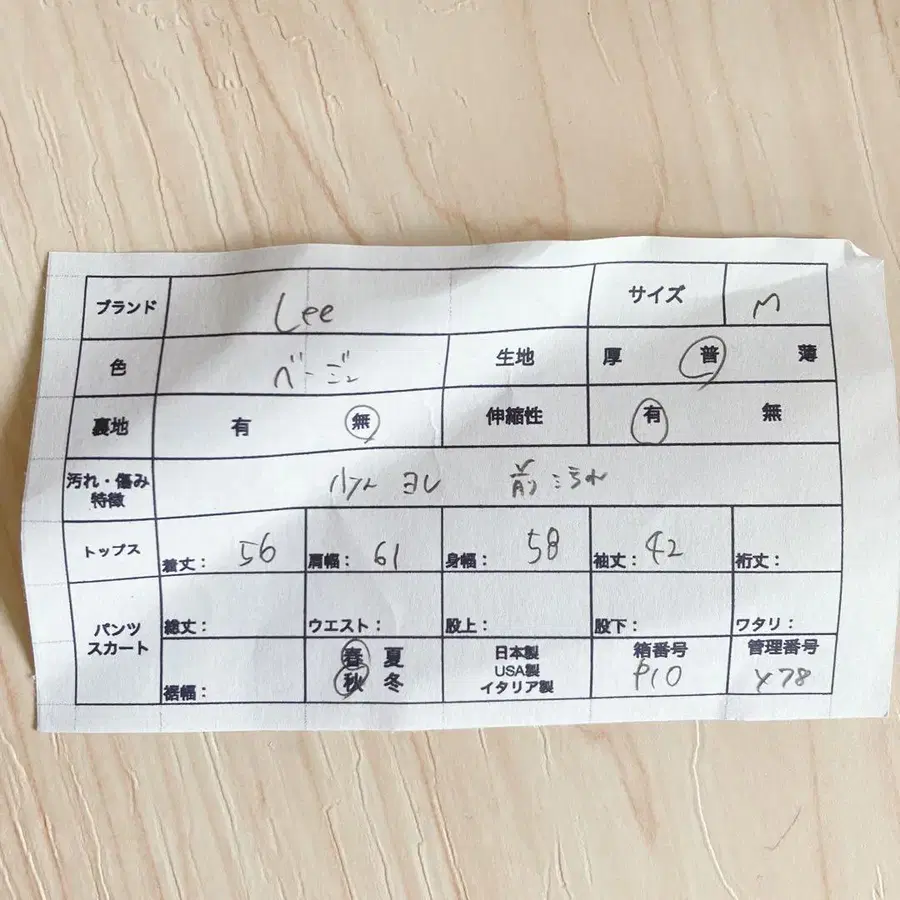 ブランド Lee サイズ M
色 ベージュ 生地 厚 普 薄
裏地 有 無 伸縮性 有 無
汚れ・傷み
特徴 ヨレ 前 汚れ
トップス 着丈： 56 肩幅： 61 身幅： 58 袖丈： 42 裄丈：
パンツ
スカート 総丈： ウエスト： 股上： 股下： ワタリ：
裾幅： 春 夏
秋 冬
日本製
USA製
イタリア製
箱番号
P10
管理番号
Y78